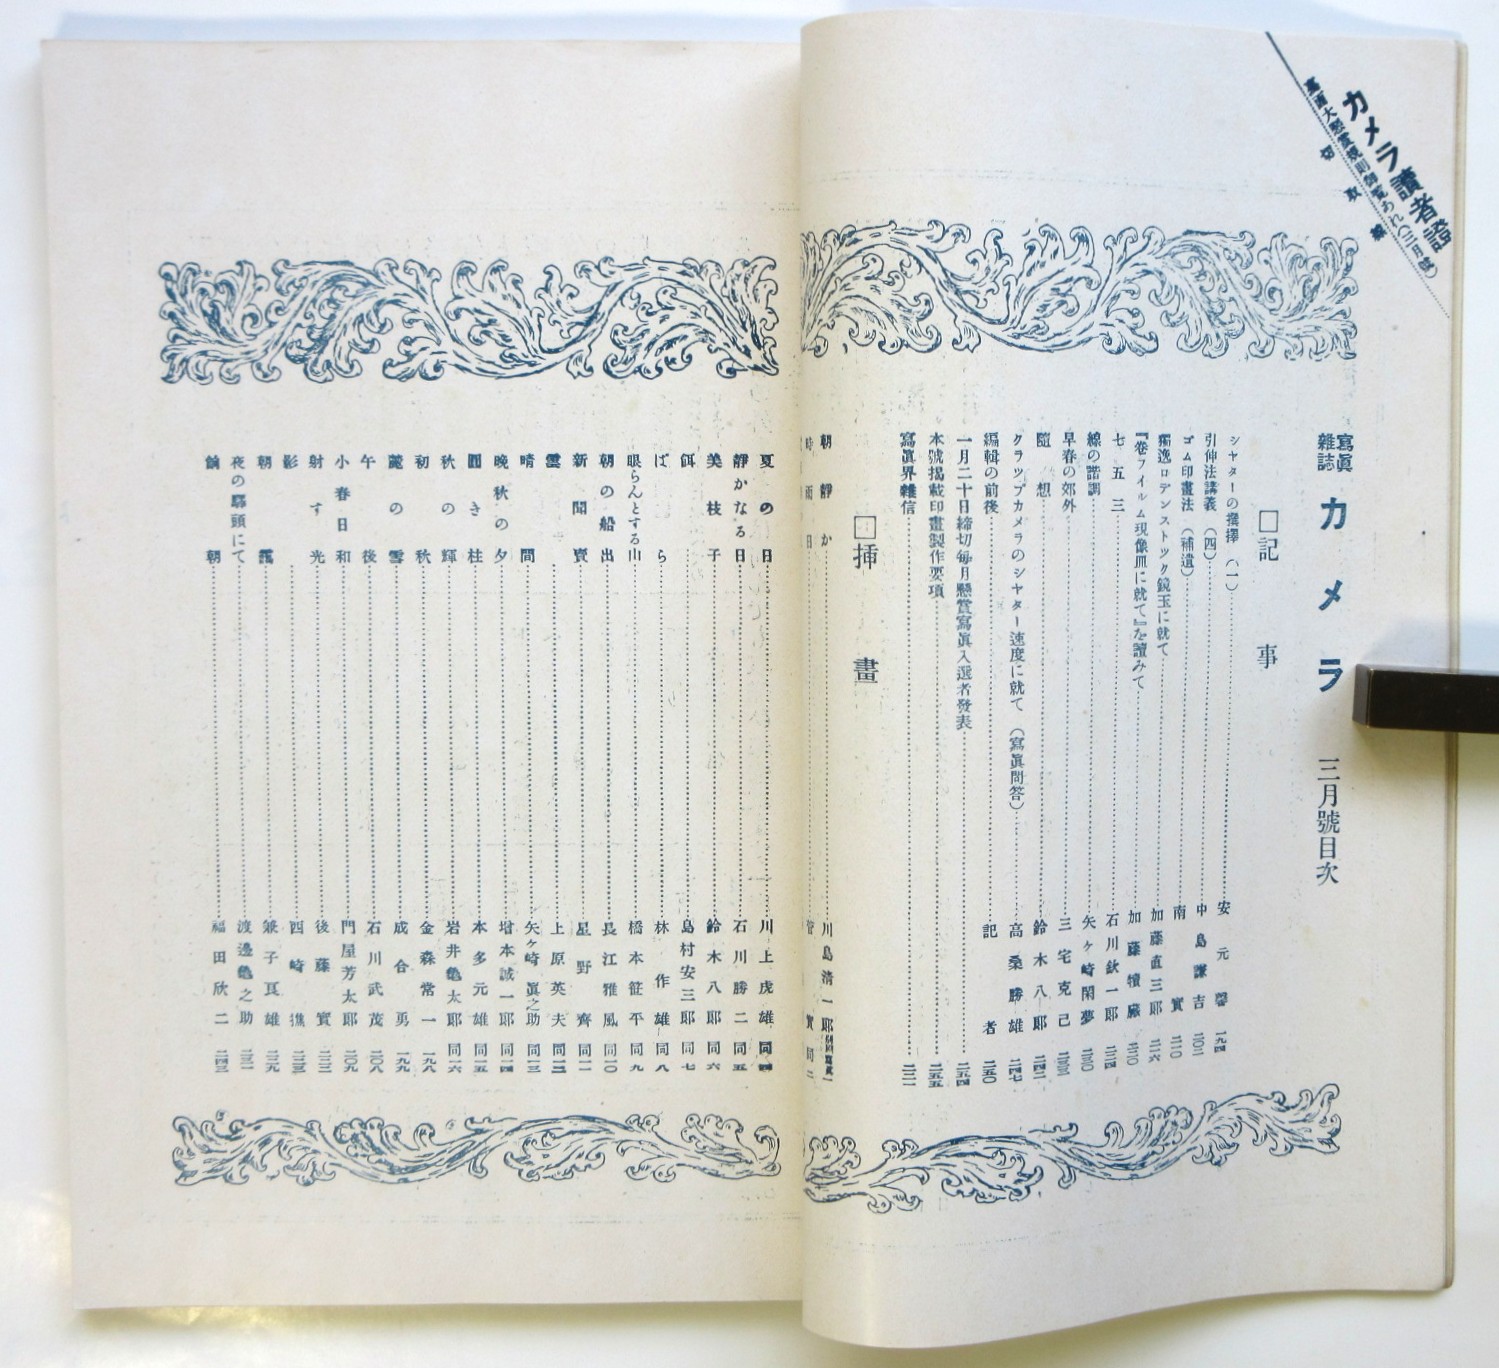 カメラ讀者證
切取線
寫眞雜誌 カメラ 三月號目次
□記事
シヤターの撰擇（一） 安元馨 一九四
引伸法講義（四） 中島謙吉 二〇二
ゴム印畫法（補遺） 南實 二一〇
獨逸ロデンストツク鏡玉に就て 加藤直三郎 二一六
『卷フイルム現像皿に就て』を讀みて 加藤犢 二二〇
七五三 石川欽一郎 二二四
線の諧調 矢ヶ崎閑夢 二三〇
早春の郊外 三宅克己 二三三
隨想 鈴木八郎 二四二
クラツプカメラのシヤター速度に就て（寫眞問答） 高桑勝雄 二四七
編輯の前後 記者 二五〇
一月二十日締切每月懸賞寫眞入選者發表 二五四
本號揭載印畫製作要項 二五五
寫眞界雜信
□挿畫
朝靜か 川島清一郎
時雨日 實 同二
夏の日 川上虎雄 同四
靜かなる日 石川勝二 同五
美枝子 鈴木八郎 同六
餌 島村安三郎 同七
ばら 林作雄 同八
眠らんとする山 橋本笹平 同九
朝の船出 長江雅風 同一〇
新聞賣 星野齊 同一一
雲 上原英夫 同一二
晴間 矢ヶ崎眞之助 同一三
晚秋の夕 增本誠一郎 同一四
圓き柱 本多元雄 同一五
秋の輝 岩井亀太郎 同一六
初秋 金森常一 一九八
麓の雪 成合勇 一九九
午後 石川武茂 二〇八
小春日和 門屋芳太郎 二〇九
射す光 後藤實 二二二
影 四崎 二二三
朝靄 兼子良雄 二三九
夜の驛頭にて 渡邊亀之助 二三二
朝 福田欣二 二四三